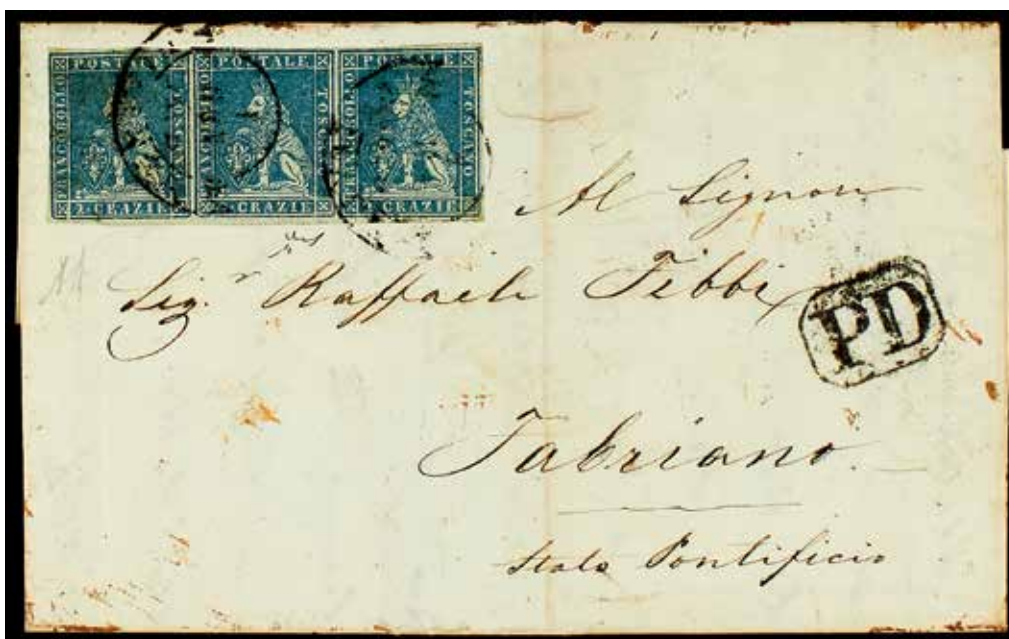 FRANCOBOLLO POSTALE TOSCANO 2 CRAZIE
FRANCOBOLLO POSTALE TOSCANO 2 CRAZIE
FRANCOBOLLO POSTALE TOSCANO 2 CRAZIE
Al Signor
Sig.r Raffaele Tibbi
PD
Fabriano
Stato Pontificio